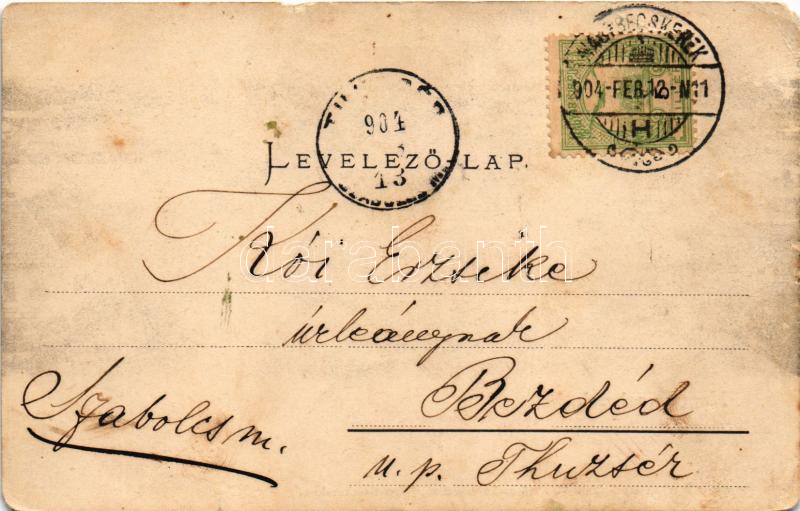 NAGYBECSKEREK
904-FEB.12-N11
H
904
13
LEVELEZŐ-LAP.
darabanth
Kói Erzsike
úrleánynak
Bezdéd
Szabolcs m.
u. p. Thuzsér